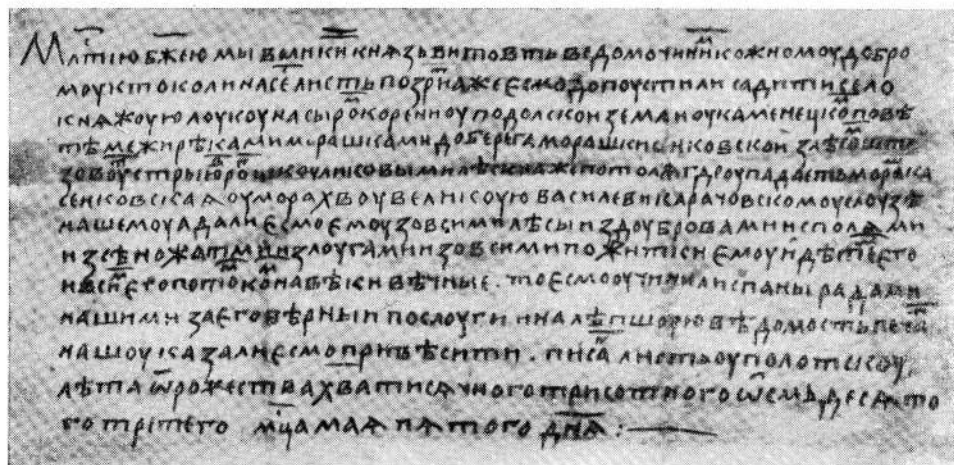 Млтію бжею мы великии кнѧзь витовтъ ведомо чини кожномоу добро
моу кто коли на сѐ листъ позрит аже есмо допоустили садити село
кнѧжоую лоукоу на сыро кореницоу подолскои земли оу каменецко повѣ
тѣ межи рѣками морашками до берега морашки сѣнковскои
зовоу стрыю
сенковскаѧ оу морахвоу великоую василеви карачовскомоу слоузѣ
нашемоу а дали есмо емоу зовсими лѣсы и здоубровами и сполѧми
и зсѣножатми и злоугами и зовсими пожитки емоу и дѣтє его
и всѐ его потоко на вѣки вѣчные . то есмо оучинили с паны радами
нашими за его вѣрныи послоуги и на лѣпшоую вѣдомость печа
нашоу казали есмо привѣсити . писа листъ оу полотскоу
лѣта ѿ рожества хва тисѧчного трисотного ѡсмьдесѧто
го третего мца маѧ пѧтого днѧ :